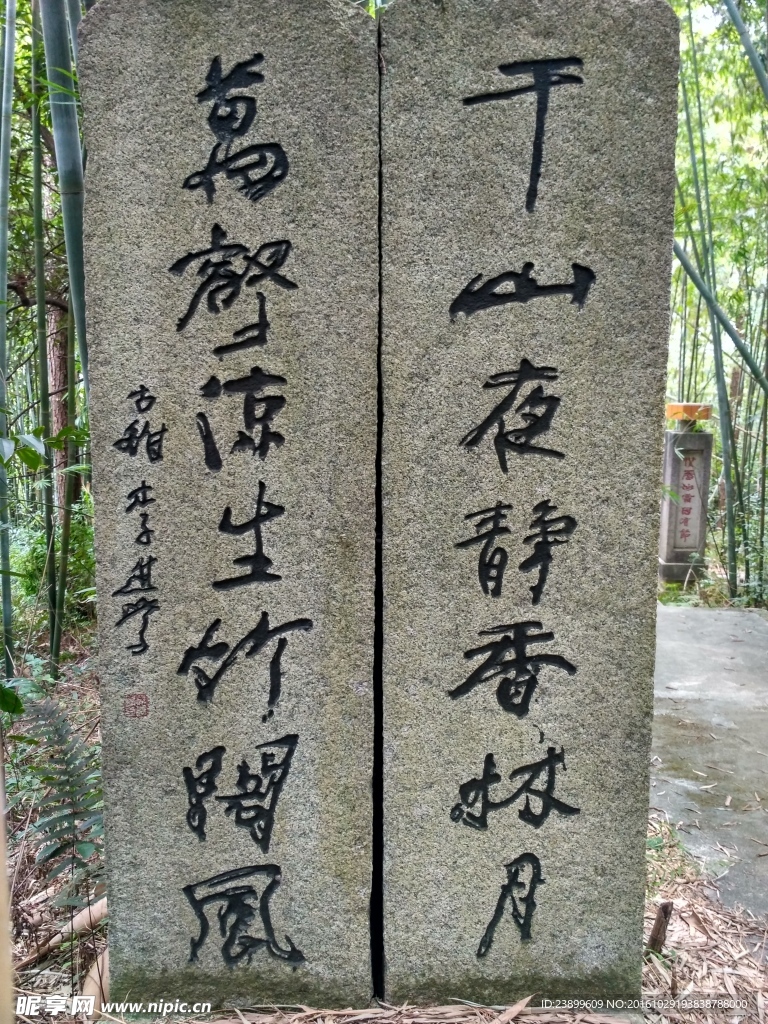 千山夜静香林月
萬壑涼生竹閣風
古 李
昵享网 www.nipic.cn
ID:23899609 NO:20161029193838788000